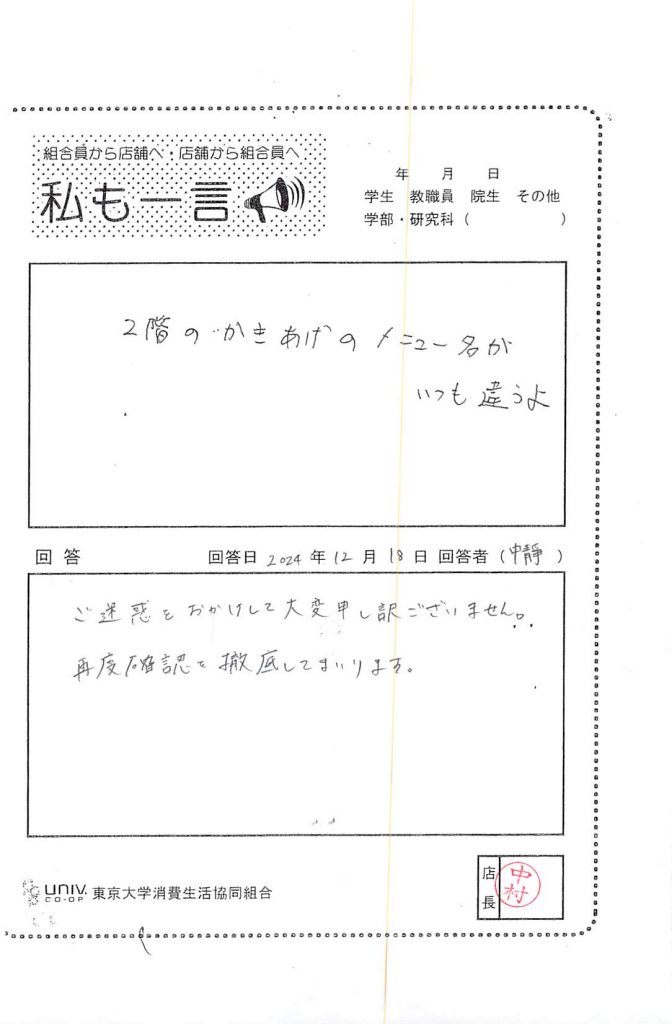 組合員から店舗へ・店舗から組合員へ
私も一言
年 月 日
学生 教職員 院生 その他
学部・研究科( )
2階のかきあげのメニュー名が
いつも違うよ
回答
回答日 2024年12月18日 回答者(中靜)
ご迷惑をおかけして大変申し訳ございません。
再度確認を撤底してまいります。
UNIV. CO-OP 東京大学消費生活協同組合
店長 中村